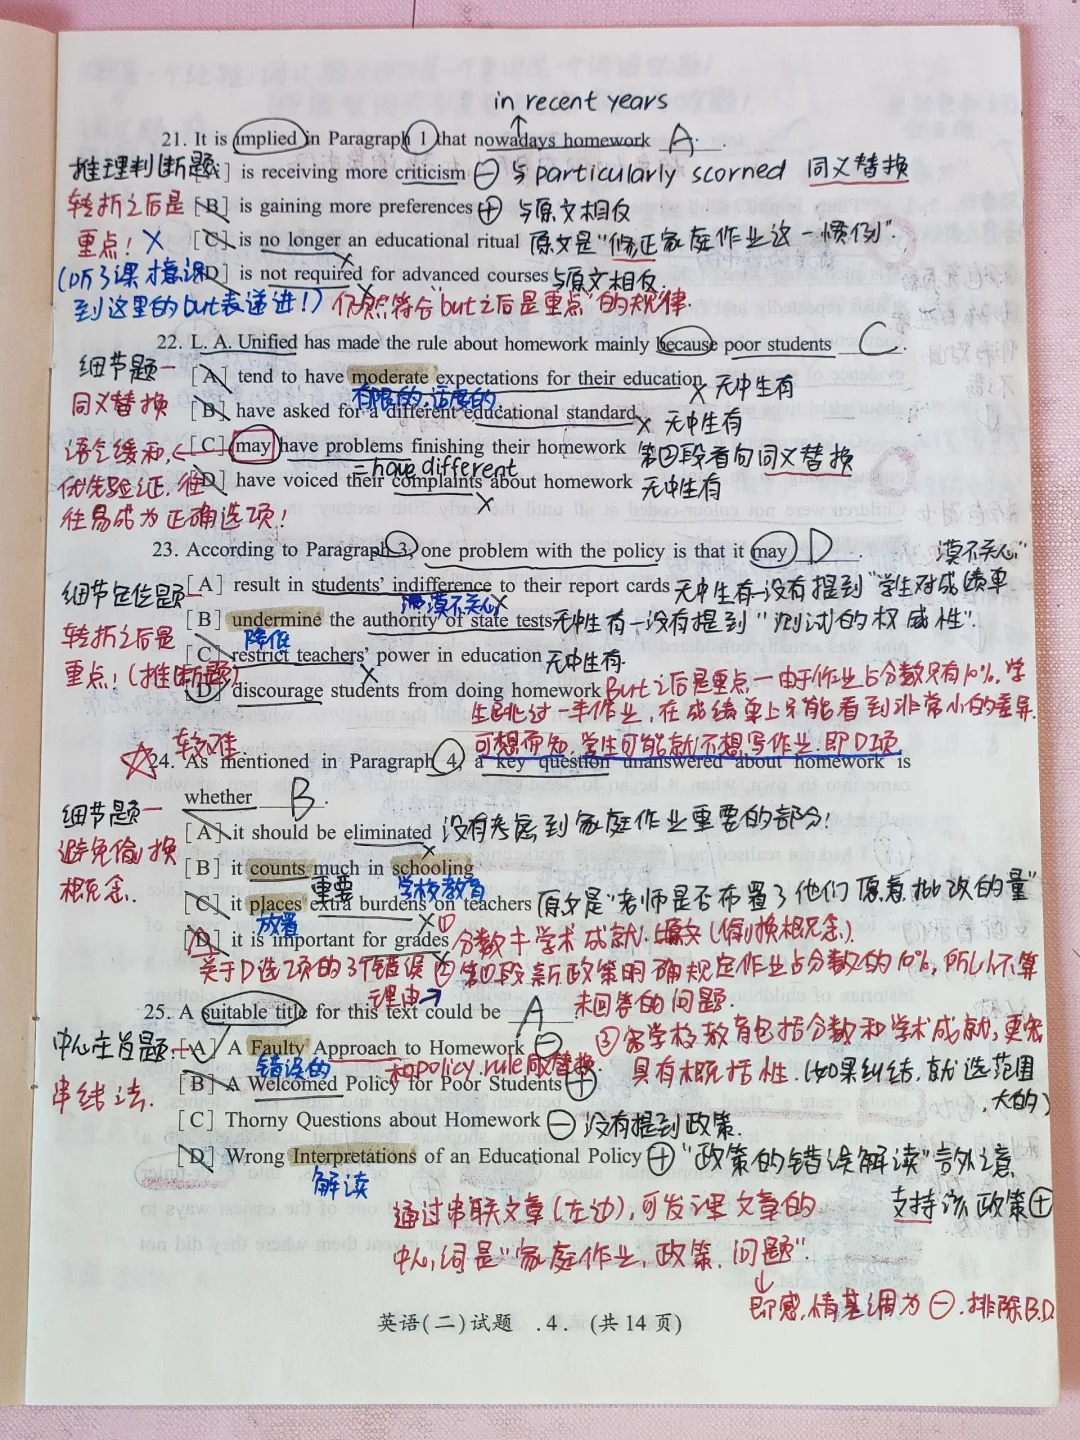 in recent years
21. It is implied in Paragraph 1 that nowadays homework A.
推理判断题
[A] is receiving more criticism ⊖ 与particularly scorned 同义替换
转折之后是
[B] is gaining more preferences ⊕ 与原文相反
重点! X
[C] is no longer an educational ritual 原文是"修正家庭作业这一惯例".
(听了课才意识
[D] is not required for advanced courses 与原文相反.
到这里的but表递进!) 仍然符合"but之后是重点"的规律.
22. L. A. Unified has made the rule about homework mainly because poor students C.
细节题一
[A] tend to have moderate expectations for their education X 无中生有
有限的,适度的
同义替换
[B] have asked for a different educational standard X 无中生有
语气缓和,←
[C] may have problems finishing their homework 第四段首句同义替换
= have different
优先验证,往
[D] have voiced their complaints about homework 无中生有
往易成为正确选项!
23. According to Paragraph 3, one problem with the policy is that it may D.
漠不关心"
细节定位题一
[A] result in students' indifference to their report cards 无中生有一没有提到"学生对成绩单
漠不关心
[B] undermine the authority of state tests 无中生有一没有提到"测试的权威性".
降低
转折之后是
[C] restrict teachers' power in education 无中生有.
重点!(推断题)
[D] discourage students from doing homework But之后是重点一由于作业占分数只有10%,学
生跳过一半作业,在成绩单上只能看到非常小的差异.
可想而知,学生可能就不想写作业.即D项
较难
24. As mentioned in Paragraph 4, a key question unanswered about homework is
whether B.
细节题一
[A] it should be eliminated 没有考虑到家庭作业重要的部分!
避免偷换
[B] it counts much in schooling
重要 学校教育
概念.
[C] it places extra burdens on teachers 原文是"老师是否布置了他们愿意批改的量"
放置
[D] it is important for grades ① 分数≠学术成就.原文(偷换概念).
关于D选项的3个错误 ② 第四段新政策明确规定作业占分数的10%,所以不算
理由→ 未回答的问题.
25. A suitable title for this text could be A.
中心主旨题+
[A] A Faulty Approach to Homework ⊖ ③ 学校教育包括分数和学术成就,更
错误的 和policy.rule可替换. 具有概括性.(如果纠结,就选范围
[B] A Welcomed Policy for Poor Students ⊕ 大的)
串线法.
[C] Thorny Questions about Homework ⊖ 没有提到政策.
[D] Wrong Interpretations of an Educational Policy ⊕ "政策的错误解读"言外之意
解读
支持该政策⊕
通过串联文章(左边),可发现文章的
中心词是"家庭作业,政策,问题".
↓
即感情基调为⊖.排除B.D
英语(二)试题 .4. (共14页)